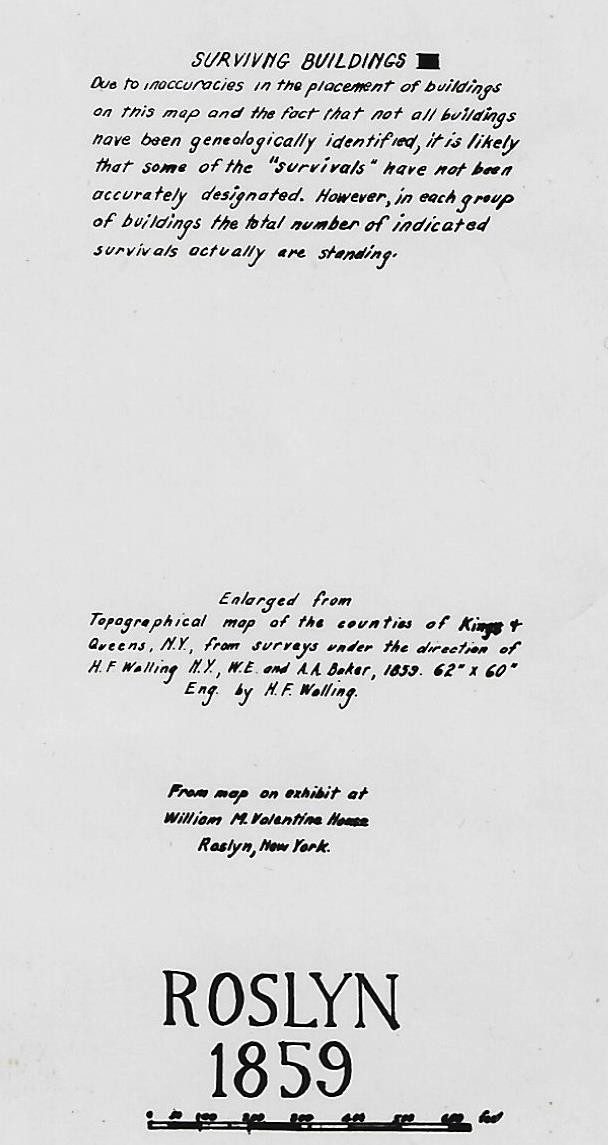 SURVIVNG BUILDINGS
Due to inaccuracies in the placement of buildings
on this map and the fact that not all buildings
have been geneologically identified, it is likely
that some of the "survivals" have not been
accurately designated. However, in each group
of buildings the total number of indicated
survivals actually are standing.
Enlarged from
Topographical map of the counties of Kings +
Queens, N.Y., from surveys under the direction of
H.F Walling N.Y., W.E. and A.A. Baker, 1859. 62" x 60"
Eng. by H.F. Walling.
From map on exhibit at
William M. Valentine House
Roslyn, New York.
ROSLYN
1859
0 50 100 200 300 400 500 600 feet